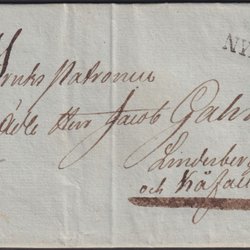 Bruks Patronen
Ädele Herr Jacob Gahn
Linderberg
och Kåfal